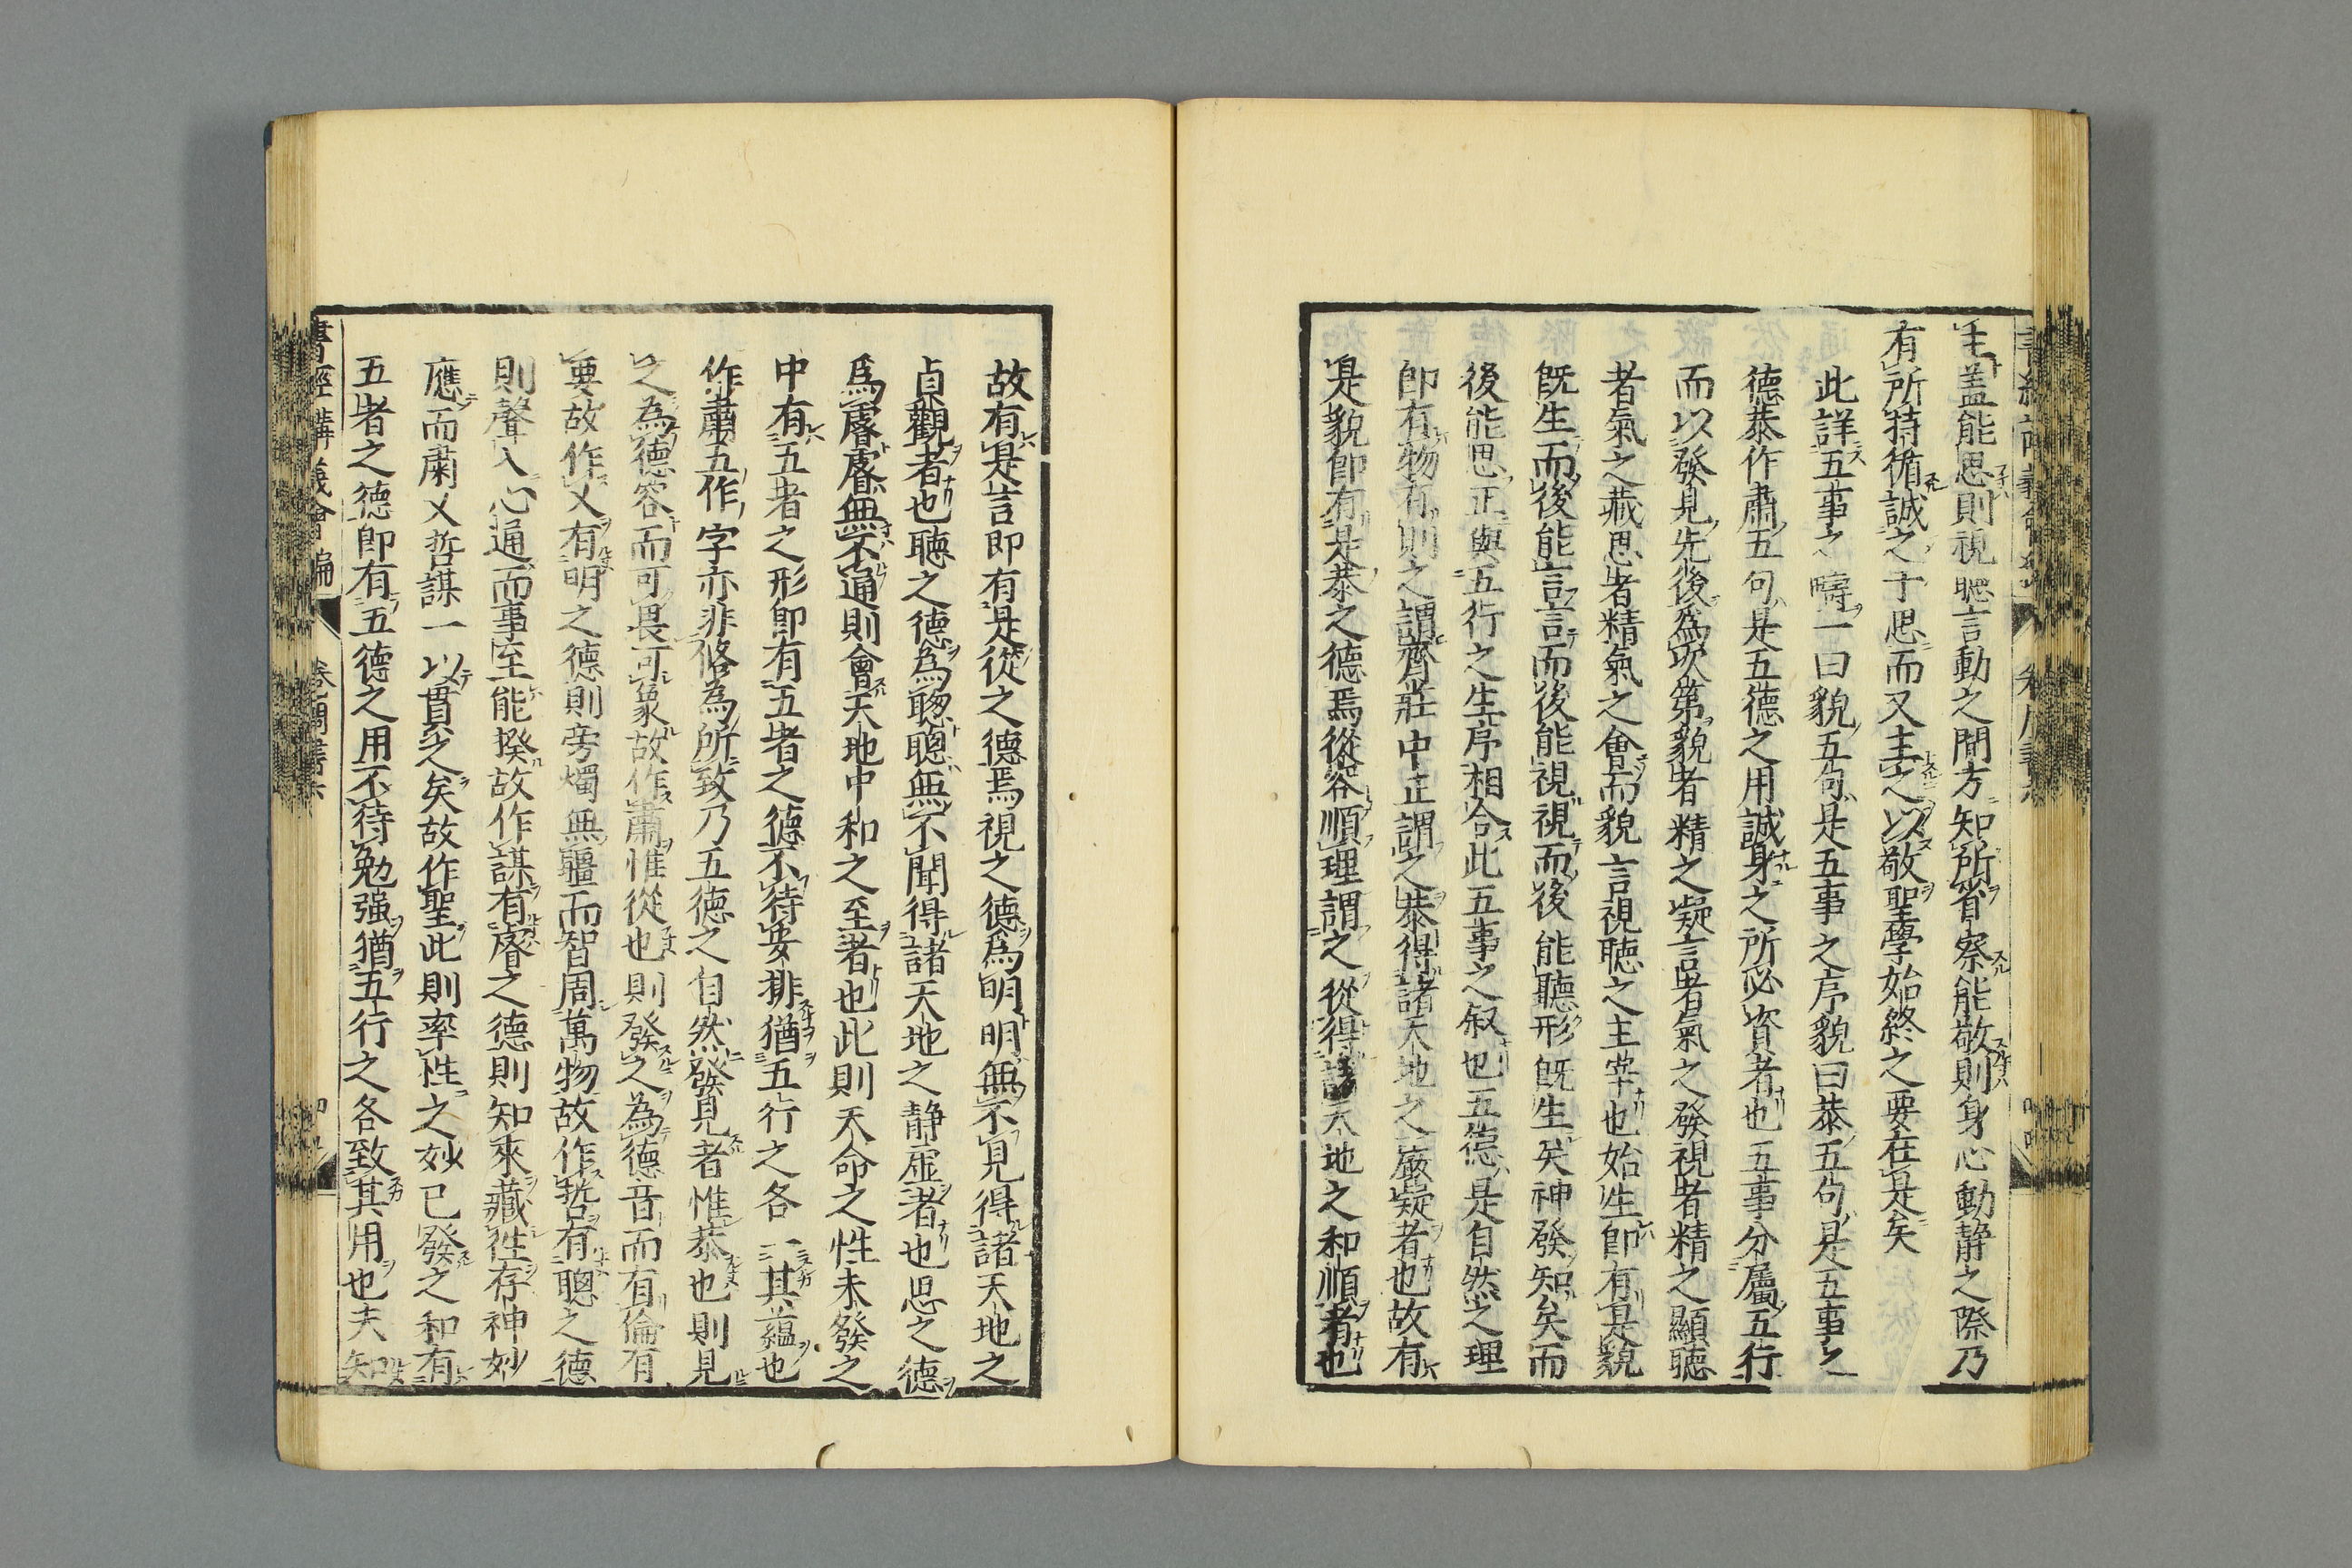 主盖能思則視聽言動之間方知所省察能敬則身心動静之際乃
有所持循誠之于思而又主之以敬聖學始終之要在是矣
此詳五事之疇一曰貌五句是五事之序貌曰恭五句是五事之
德恭作肅五句是五德之用誠身之所必資者也五事分屬五行
而以發見先後爲次第貌者精之凝言者氣之發視者精之顯聽
者氣之藏思者精氣之會而貌言視聽之主宰也始生即有是貌
既生而後能言言而後能視視而後能聽形既生矣神發知矣而
後能思正與五行之生序相合此五事之叙也五德是自然之理
即有物有則之謂齊莊中正謂之恭得諸天地之嚴凝者也故有
是貌即有是恭之德焉從容順理謂之從得諸天地之和順者也
故有是言即有是從之德焉視之德爲明明無不見得諸天地之
貞觀者也聽之德爲聰聰無不聞得諸天地之静虛者也思之德
爲睿睿無不通則會天地中和之至者也此則天命之性未發之
中有五者之形即有五者之德不待安排猶五行之各一其蘊也
作肅五作字亦非俗為所致乃五德之自然發見者惟恭也則見
之為德容而可畏可象故作肅惟從也則發之為德音而有倫有
要故作乂有明之德則旁燭無疆而智周萬物故作哲有聰之德
則聲入心通而事至能揆故作謀有睿之德則知來藏徃存神妙
應而肅乂哲謀一以貫之矣故作聖此則率性之妙已發之和有
五者之德即有五德之用不待勉强猶五行之各致其用也夫知
書經講義會編 卷之 周書六